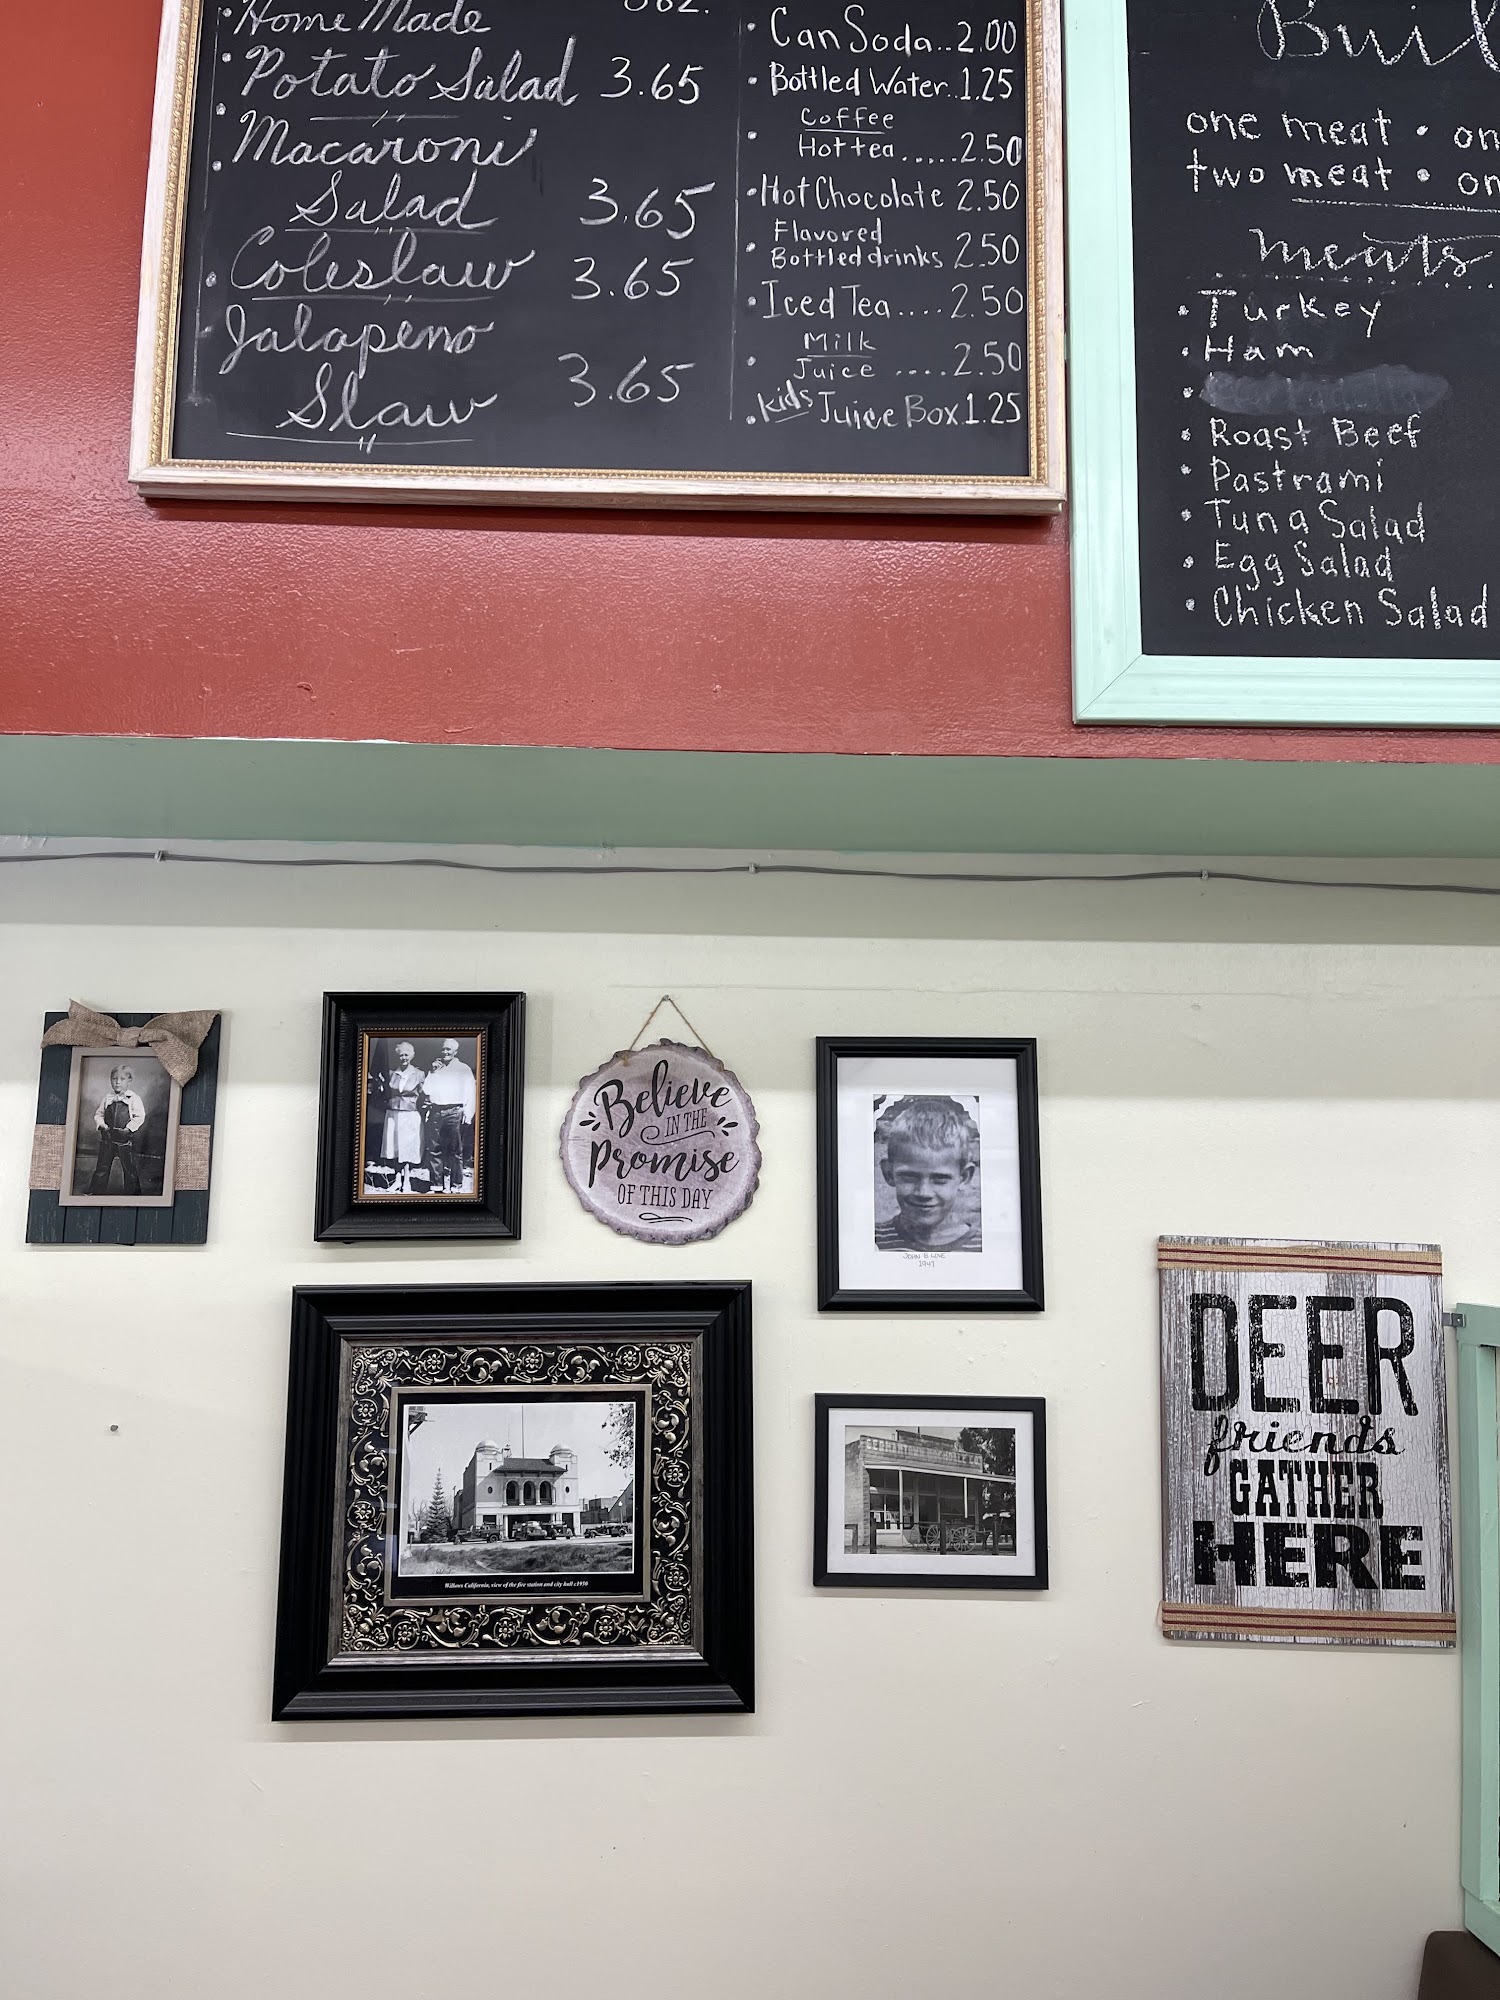 Home Made
Potato Salad 3.65
Macaroni
Salad 3.65
Coleslaw 3.65
Jalapeno
Slaw 3.65
Can Soda..2.00
Bottled Water..1.25
Coffee
Hot tea.....2.50
Hot Chocolate 2.50
Flavored
Bottled drinks 2.50
Iced Tea....2.50
Milk
Juice ....2.50
Kids Juice Box 1.25
one meat •
two meat •
meats
Turkey
Ham
Roast Beef
Pastrami
Tuna Salad
Egg Salad
Chicken Salad
Believe
IN THE
Promise
OF THIS DAY
1947
Willows California, view of the fire station and city hall c1950
DEER
friends
GATHER
HERE